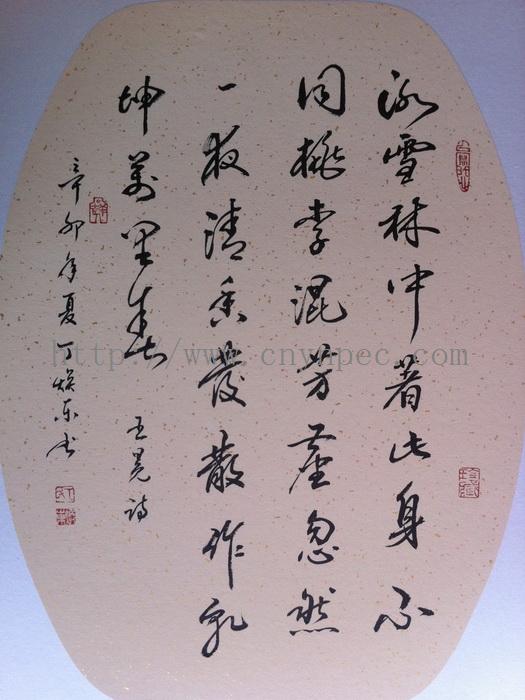 冰雪林中著此身不
同桃李混芳塵忽然
一夜清香發散作乾
坤萬里春 王冕诗
辛卯年夏丁焕东书
http://www.cnyhpec.com